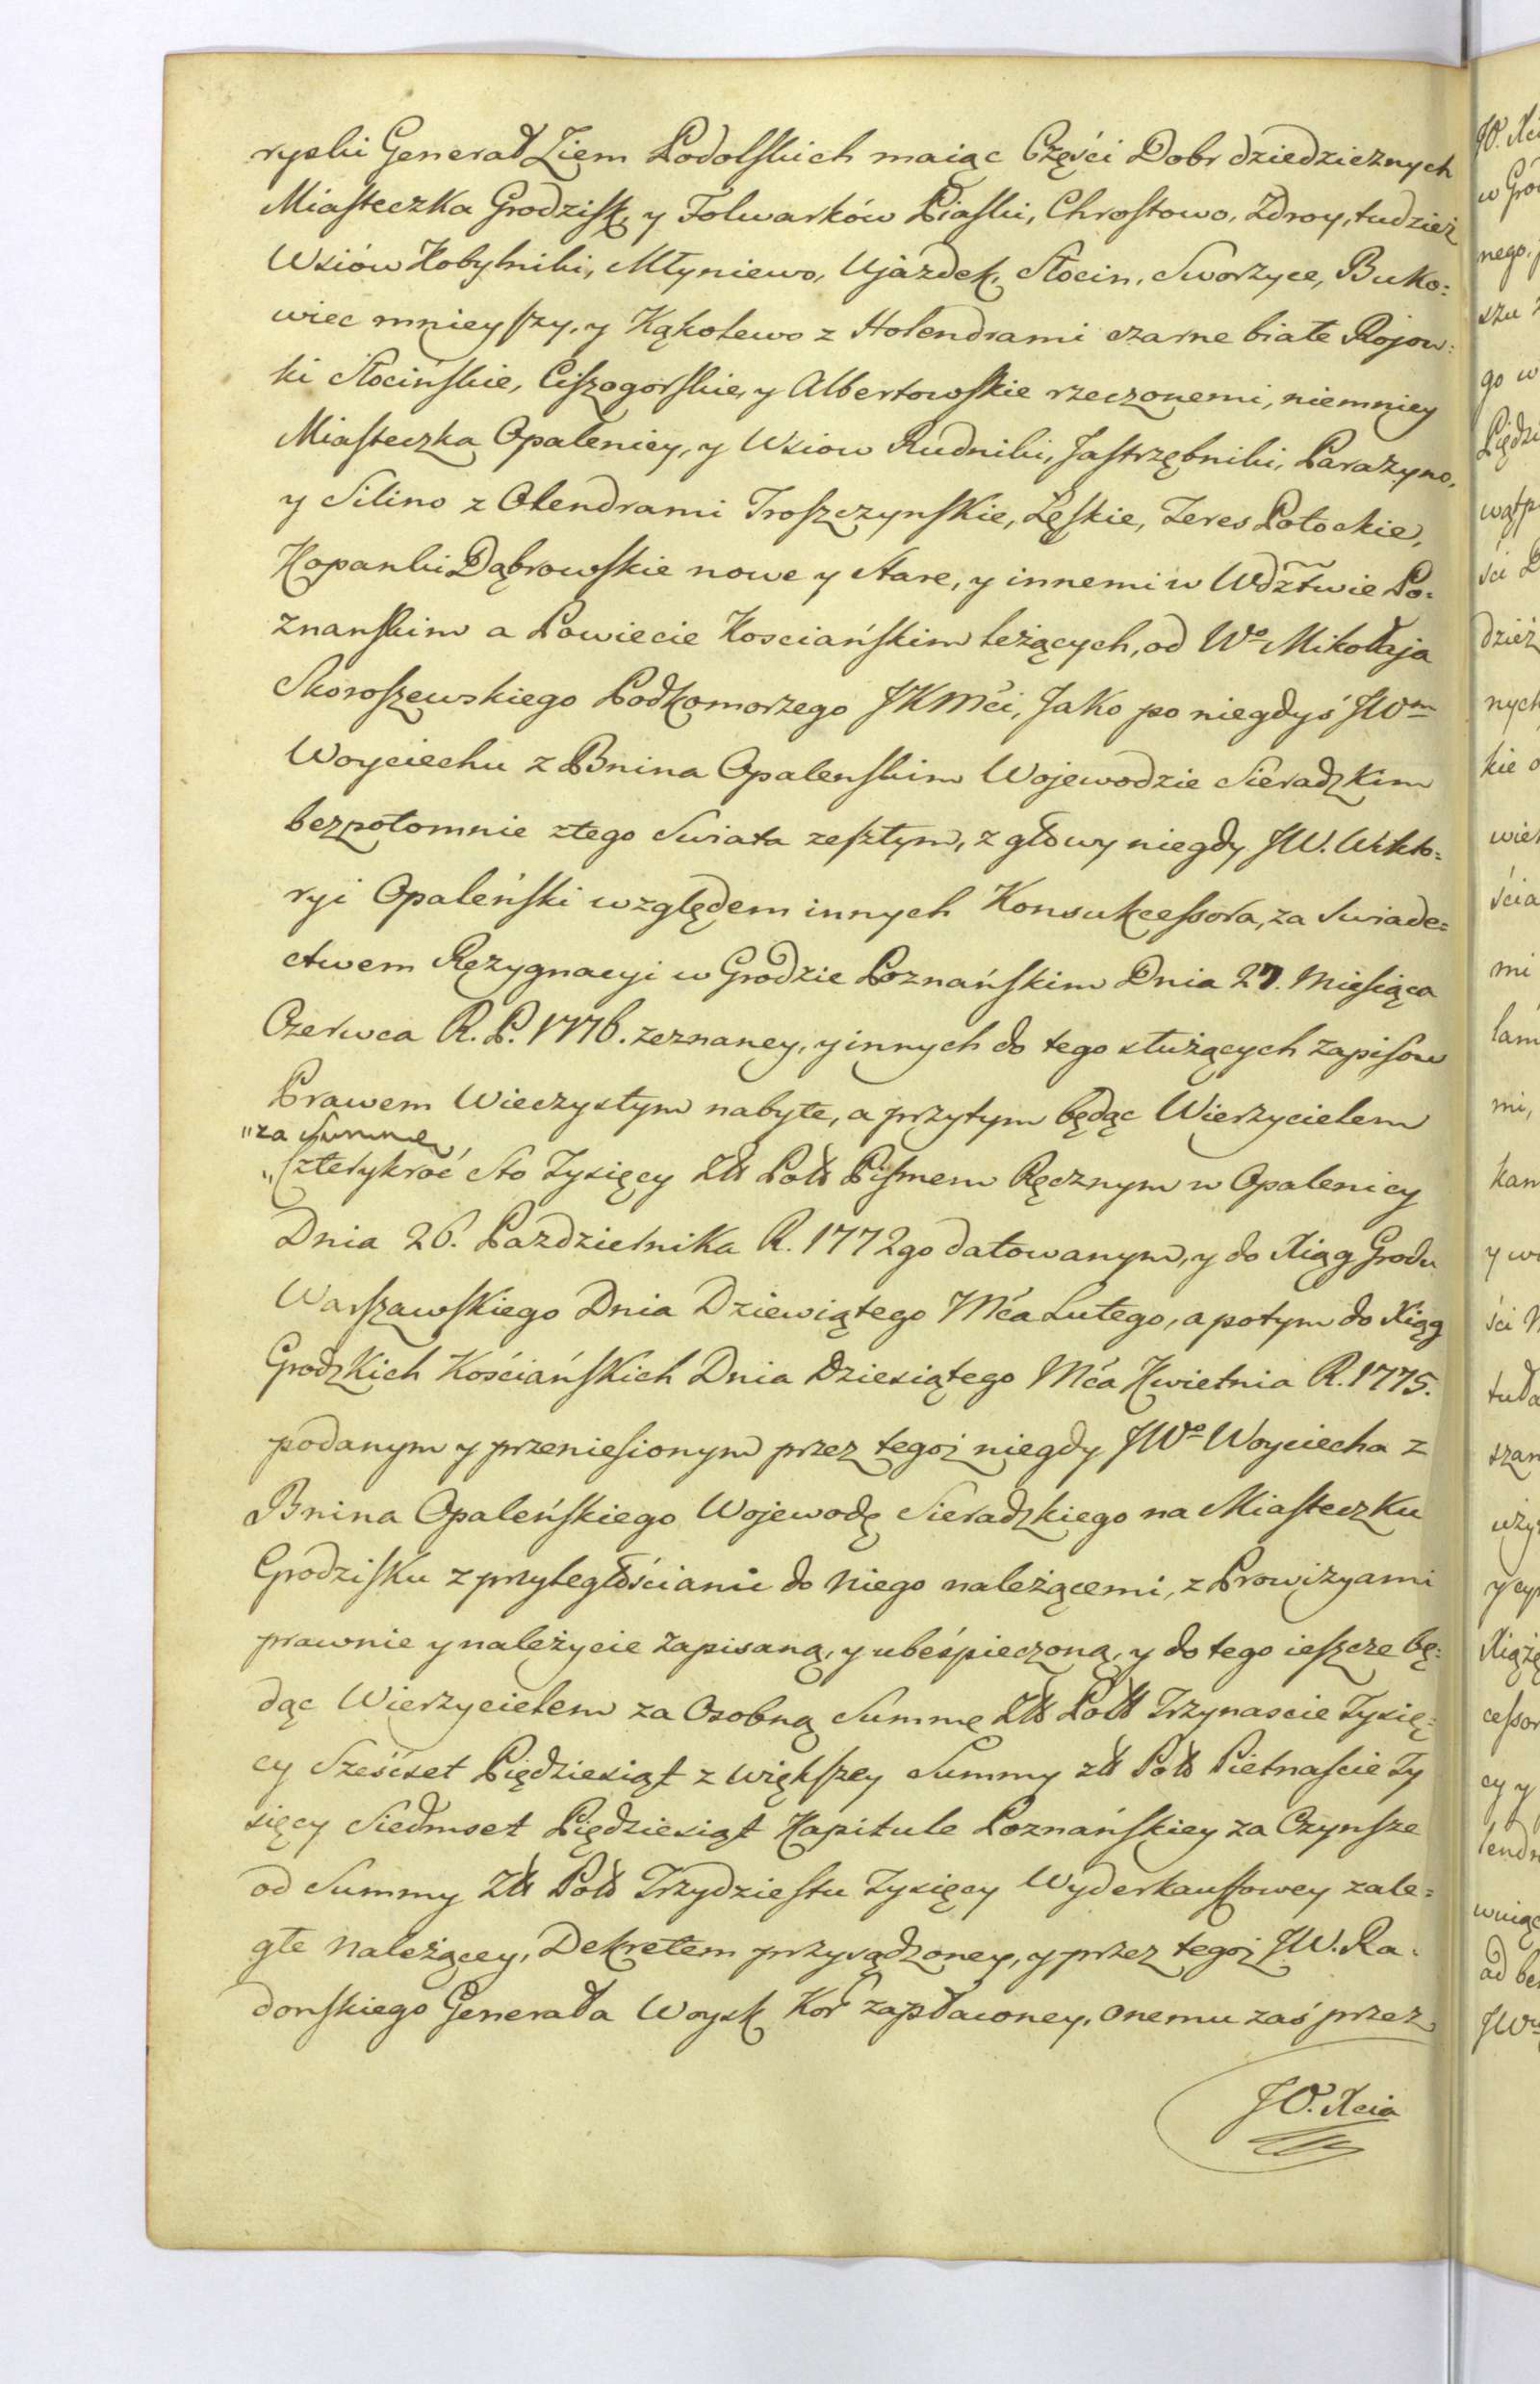 ryski Generał Ziem Podolskich maiąc Części Dobr dziedzicznych
Miasteczka Grodzisk, y Folwarków Piaski, Chrostowo, Zdroy, tudzież
Wsiów Kobylniki, Młyniewo, Ujazdek, Słocin, Sworzyce, Buko=
wiec mnieyszy, y Kąkolewo z Holendrami czarne białe Rojow=
ki Słocińskie, Ciszogorskie, y Albertowskie rzeczonemi, niemniey
Miasteczka Opalenicy, y Wsiow Rudniki, Jastrzębniki, Parazyno,
y Silino z Olendrami Troszczynskie, Łęskie, Teres Potockie,
Kopanki Dąbrowskie nowe y stare, y innemi w Wdztwie Po=
znanskim a Powiecie Kosciańskim leżących, od Wo Mikołaja
Skoroszewskiego Podkomorzego JKMći, Jako po niegdyś JWm
Woyciechu z Bnina Opalenskim Wojewodzie Sieradzkim
bezpotomnie z tego Swiata zeszłym, z głowy niegdy JW. Wikto=
ryi Opaleński względem innych Konsukcessora, za Swiade=
ctwem Rezygnacyi w Grodzie Poznańskim Dnia 27. Miesiąca
Czerwca R. P. 1776. zeznaney, y innych do tego służących Zapisow
Prawem Wieczystym nabyte, a przytym będąc Wierzycielem
"za Summę
"Czterykroć Sto Tysięcy Złł Poll Pismem Ręcznym w Opalenicy
Dnia 26. Pazdziernika R. 1772go datowanym, y do Xiąg Grodu
Warszawskiego Dnia Dziewiątego Mća Lutego, a potym do Xiąg
Grodzkich Kościańskich Dnia Dziesiątego Mća Kwietnia R. 1775.
podanym y przeniesionym przez tegoż niegdy JWo Woyciecha z
Bnina Opaleńskiego Wojewodę Sieradzkiego na Miasteczku
Grodzisku z przyległościami do Niego należącemi, z Prowizyami
prawnie y należycie zapisaną, y ubeśpieczoną, y do tego ieszcze bę=
dąc Wierzycielem za Osobną Summę Złł Poll Trzynascie Tysię=
cy Sześćset Pięćdziesiąt z większey Summy złł Poll Pietnaście Ty
sięcy Siedmset Pięćdziesiąt Kapitule Poznańskiey za Czynsze
od Summy Złł Poll Trzydziestu Tysięcy Wyderkauffowey zale=
głe należącey, Dekretem przysądzoney, y przez tegoż JW. Ra=
donskiego Generała Woysk Kor zapłaconey, onemu zaś przez
JO. Xcia